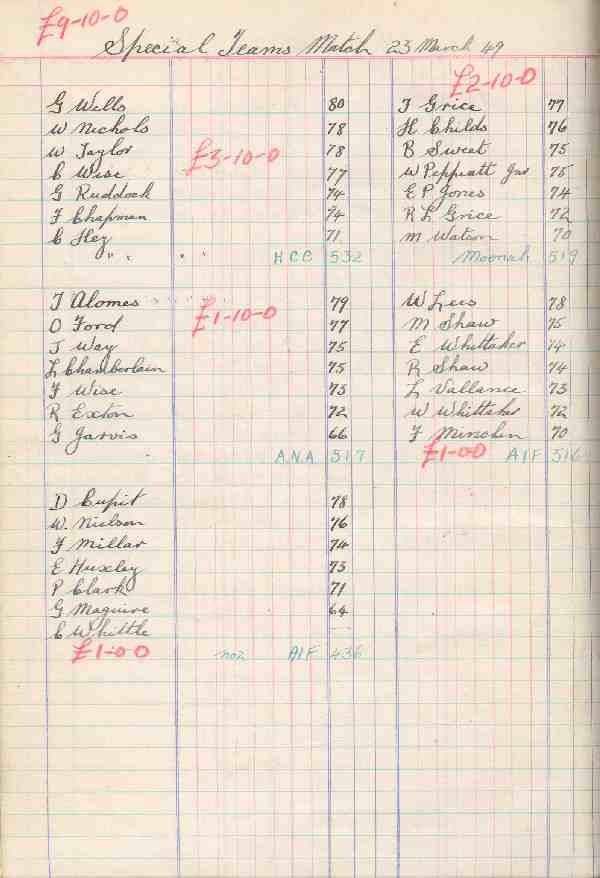 £9-10-0
Special Teams Match 23 March 49
G Wells 80
W Nichols 78
W Taylor 78
£3-10-0
C Wise 77
G Ruddock 74
F Chapman 74
C Hey 71
" " " "
H C C 532
£2-10-0
T Grice 77
H Childs 76
B Sweet 75
W Peppiatt Jnr 75
E P Jones 74
R L Grice 72
M Watson 70
Moonah 519
T Alomes 79
£1-10-0
O Ford 77
J Way 75
L Chamberlain 75
F Wise 73
R Exton 72
G Jarvis 66
A.N.A 517
W Lees 78
M Shaw 75
E Whittaker 74
R Shaw 74
L Vallance 73
W Whittaker 72
F Minchen 70
£1-0-0 AIF 516
D Cupit 78
W. Nielson 76
F Millar 74
E Huxley 73
P Clark 71
G Maguire 64
C Whittle
£1-0-0 no2 AIF 436